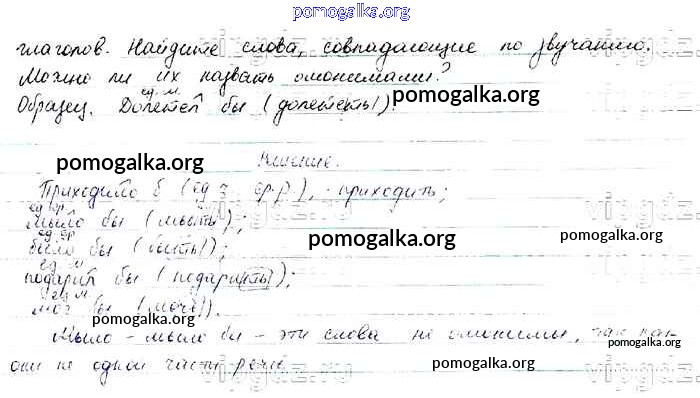 pomogalka.org
глаголов. Найдите слова, совпадающие по звучанию.
Можно ли их назвать омонимами?
ед. м.
Образец. Долетел бы (долететь).
pomogalka.org
Решение.
pomogalka.org
Приходило б (ед ч. ср.р), - приходить;
ед ср.
мыло бы (мыть);
ед ср
было бы (быть);
pomogalka.org
ед. м
подарил бы (подарить);
ед м
мог бы (мочь).
pomogalka.org
Мыло - мыло бы - эти слова не омонимы, так как
pomogalka.org
они не одной части речи.
pomogalka.org